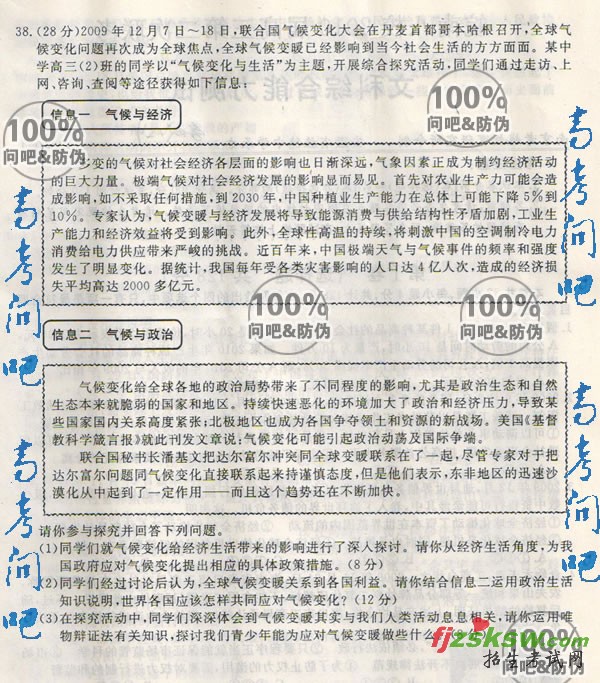 38.(28分)2009年12月7日～18日,联合国气候变化大会在丹麦首都哥本哈根召开,全球气
候变化问题再次成为全球焦点,全球气候变暖已经影响到当今社会生活的方方面面。某中
学高三(2)班的同学以“气候变化与生活”为主题,开展综合探究活动,同学们通过走访、上
网、咨询、查阅等途径获得如下信息:
100%
问吧&防伪
100%
问吧&防伪
信息一 气候与经济
多变的气候对社会经济各层面的影响也日渐深远,气象因素正成为制约经济活动
的巨大力量。极端气候对社会经济发展的影响显而易见。首先对农业生产力可能会造
成影响,如不采取任何措施,到2030年,中国种植业生产能力在总体上可能下降5%到
10%。专家认为,气候变暖与经济发展将导致能源消费与供给结构性矛盾加剧,工业生
产能力和经济效益将受到影响。此外,全球性高温的持续,将刺激中国的空调制冷电力
消费给电力供应带来严峻的挑战。近百年来,中国极端天气与气候事件的频率和强度
发生了明显变化。据统计,我国每年受各类灾害影响的人口达4亿人次,造成的经济损
失平均高达2000多亿元。
高考问吧
高考问吧
100%
问吧&防伪
100%
问吧&防伪
信息二 气候与政治
气候变化给全球各地的政治局势带来了不同程度的影响,尤其是政治生态和自然
生态本来就脆弱的国家和地区。持续快速恶化的环境加大了政治和经济压力,导致某
些国家国内关系高度紧张;北极地区也成为各国争夺领土和资源的新战场。美国《基督
教科学箴言报》就此刊发文章说:气候变化可能引起政治动荡及国际争端。
联合国秘书长潘基文把达尔富尔冲突同全球变暖联系在了一起,尽管专家对于把
达尔富尔问题同气候变化直接联系起来持谨慎态度,但是他们表示,东非地区的迅速沙
漠化从中起到了一定作用——而且这个趋势还在不断加快。
高考问吧
高考问吧
请你参与探究并回答下列问题。
(1)同学们就气候变化给经济生活带来的影响进行了深入探讨。请你从经济生活角度,为我
国政府应对气候变化提出相应的具体政策措施。(8分)
(2)同学们经过讨论后认为,全球气候变暖关系到各国利益。请你结合信息二运用政治生活
知识说明,世界各国应该怎样共同应对气候变化?(12分)
(3)在探究活动中,同学们深深体会到气候变暖其实与我们人类活动息息相关,请你运用唯
物辩证法有关知识,探讨我们青少年能为应对气候变暖做些什么
100%
问吧&防伪
fjzsksw.com
招生考试网